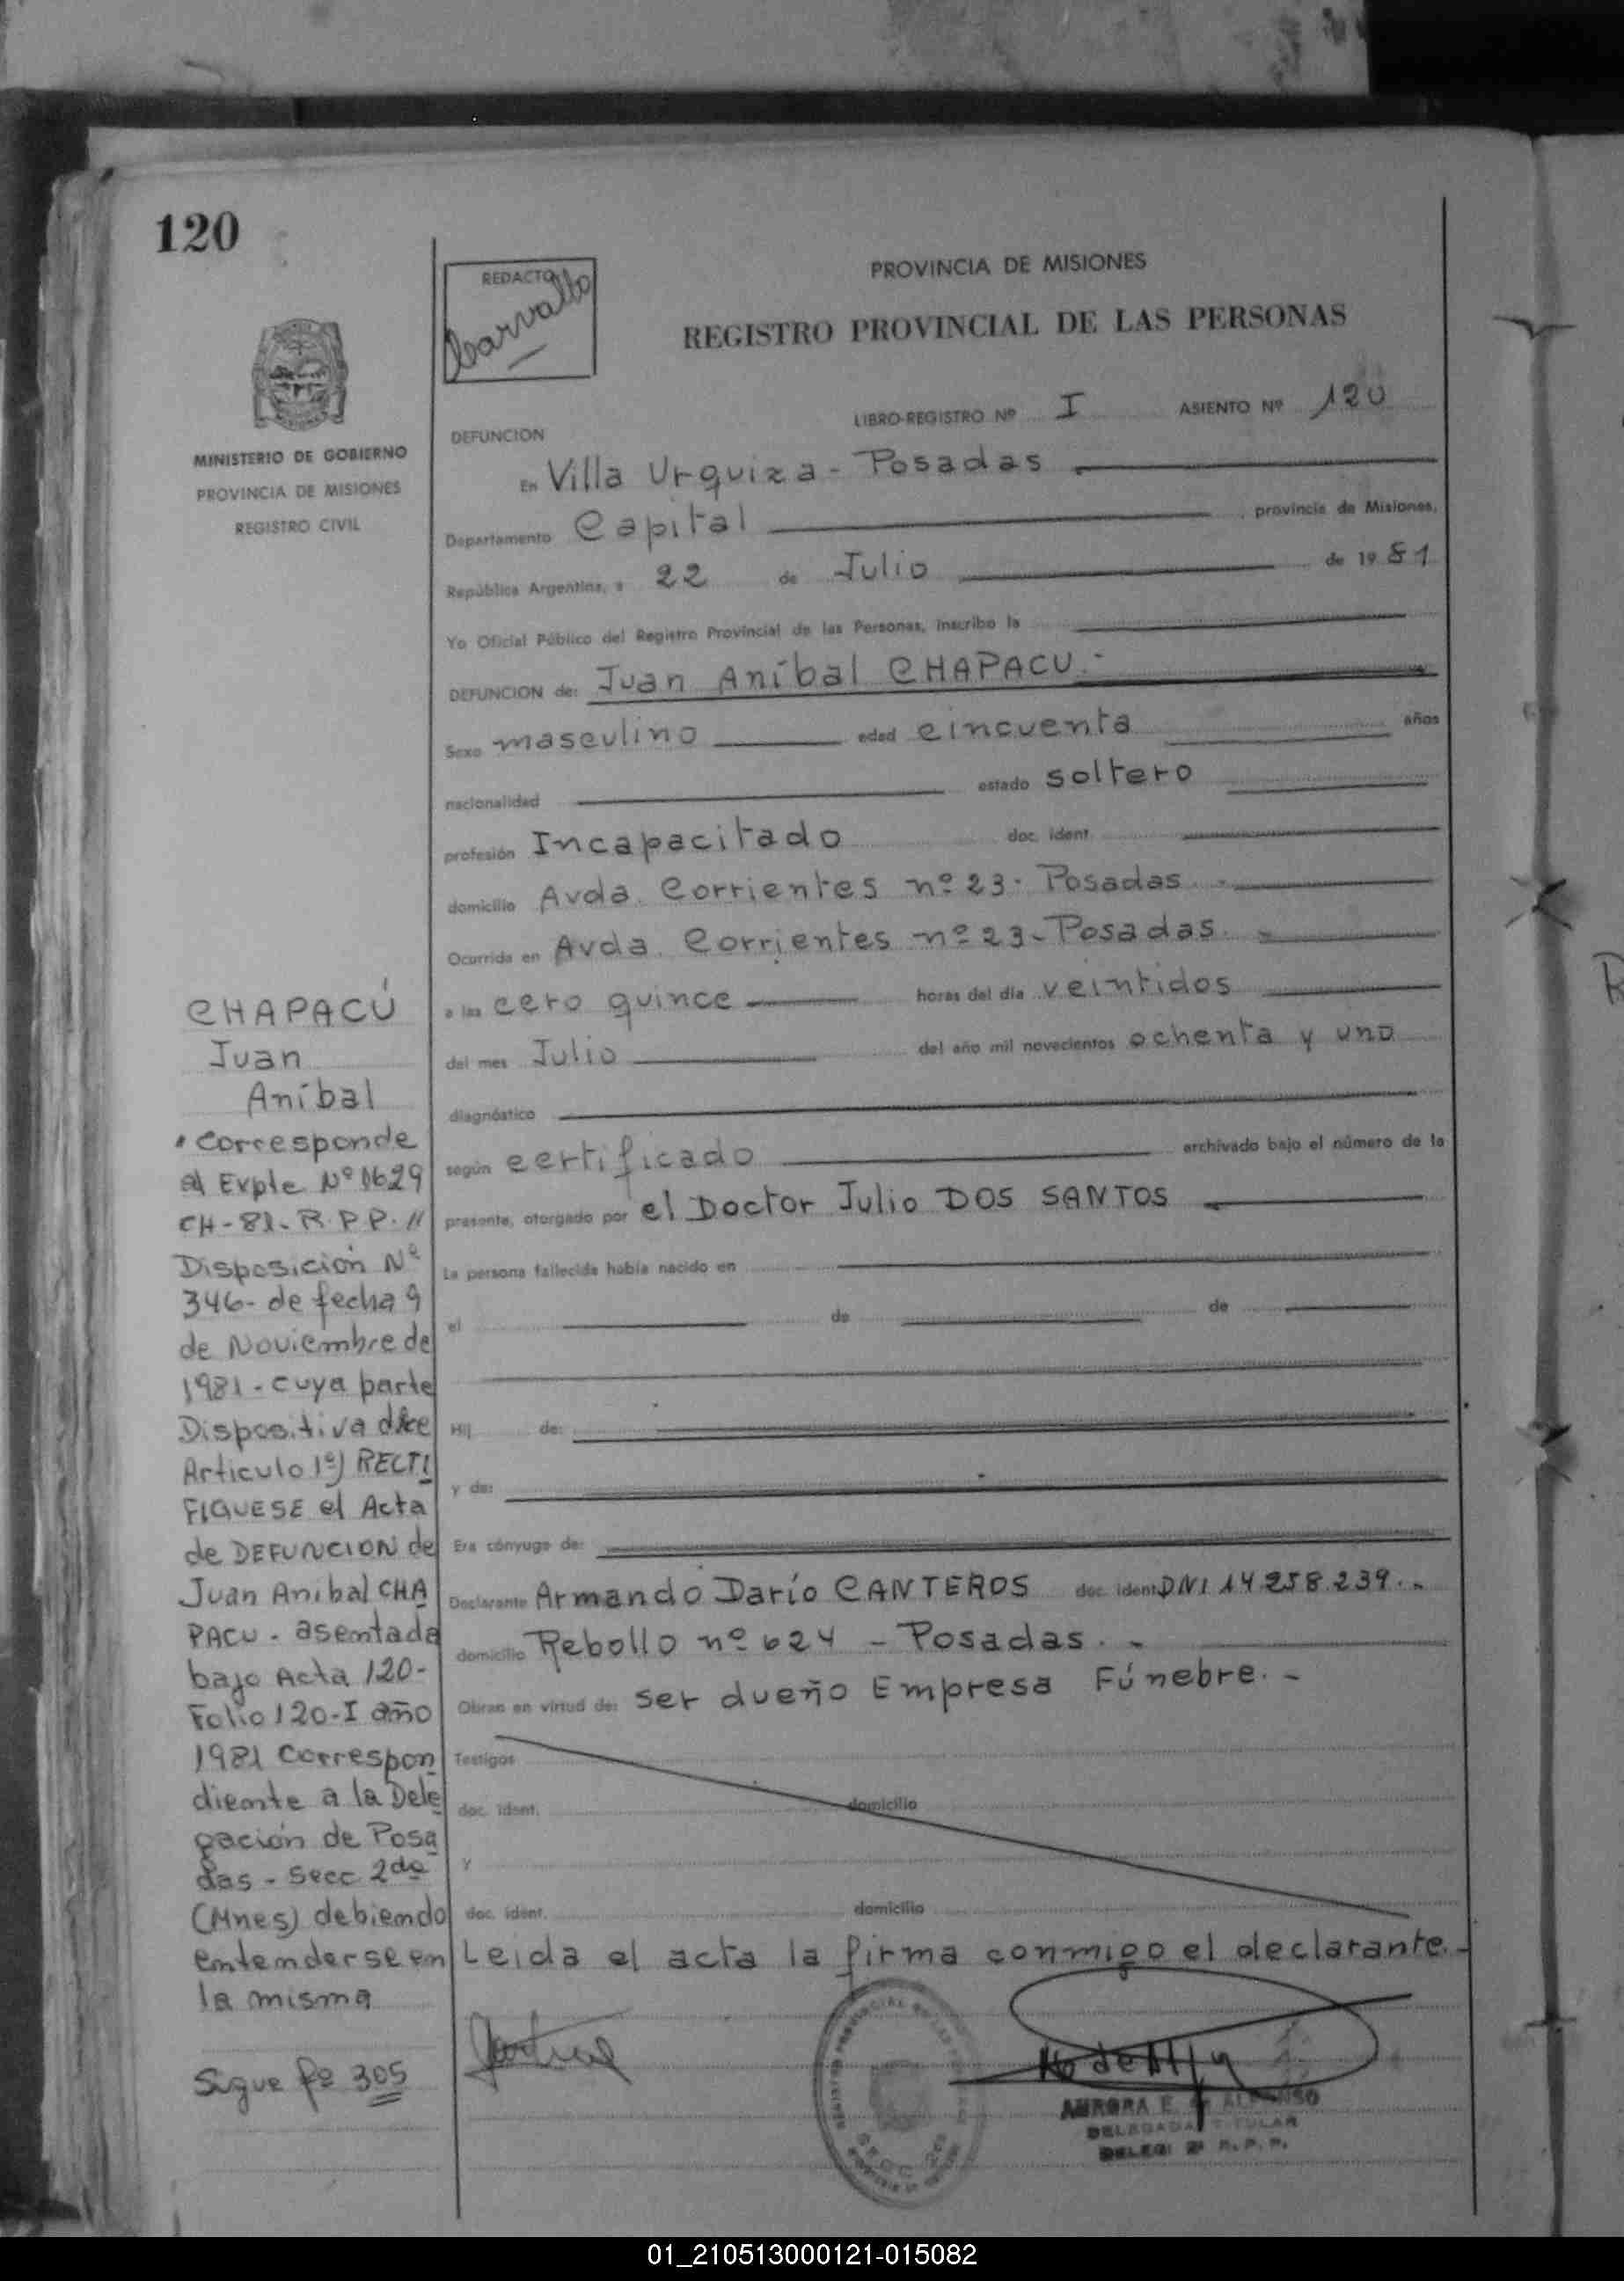 120
MINISTERIO DE GOBIERNO
PROVINCIA DE MISIONES
REGISTRO CIVIL
REDACTO
Carvallo
PROVINCIA DE MISIONES
REGISTRO PROVINCIAL DE LAS PERSONAS
LIBRO-REGISTRO Nº I ASIENTO Nº 120
DEFUNCION
En Villa Urquiza - Posadas
Departamento Capital provincia de Misiones,
República Argentina, a 22 de Julio de 1981
Yo Oficial Público del Registro Provincial de las Personas, inscribo la
DEFUNCION de: Juan Aníbal CHAPACU.-
Sexo masculino edad cincuenta años
nacionalidad estado soltero
profesión Incapacitado doc. ident.
domicilio Avda. Corrientes nº 23- Posadas.-
Ocurrida en Avda. Corrientes nº 23- Posadas.-
a las cero quince horas del día veintidos
del mes Julio del año mil novecientos ochenta y uno
diagnóstico
según certificado archivado bajo el número de la
presente, otorgado por el Doctor Julio DOS SANTOS
La persona fallecida había nacido en
el de de
Hij de:
y de:
Era cónyuge de:
Declarante Armando Darío CANTEROS doc. ident. DNI 14.258.239.-
domicilio Rebollo nº 624 - Posadas.-
Obran en virtud de: ser dueño Empresa Fúnebre.-
Testigos
doc. ident. domicilio
y
doc. ident. domicilio
Leida el acta la firma conmigo el declarante.-
CHAPACÚ
Juan
Aníbal
Corresponde
al Expte Nº 1629
CH-81- R.P.P.//
Disposición Nº
346- de fecha 9
de Noviembre de
1981- cuya parte
Dispositiva dice
Articulo 1º) RECTI
FIQUESE el Acta
de DEFUNCION de
Juan Anibal CHA
PACU - asentada
bajo Acta 120-
Folio 120-I año
1981 Correspon
diente a la Dele
gación de Posa
das - Secc 2da
(Mnes) debiendo
entenderse en
la misma
Sigue fº 305
AURORA E. de ALFONSO
DELEGADA TITULAR
DELEG: 2ª R. P. P.
01_210513000121-015082